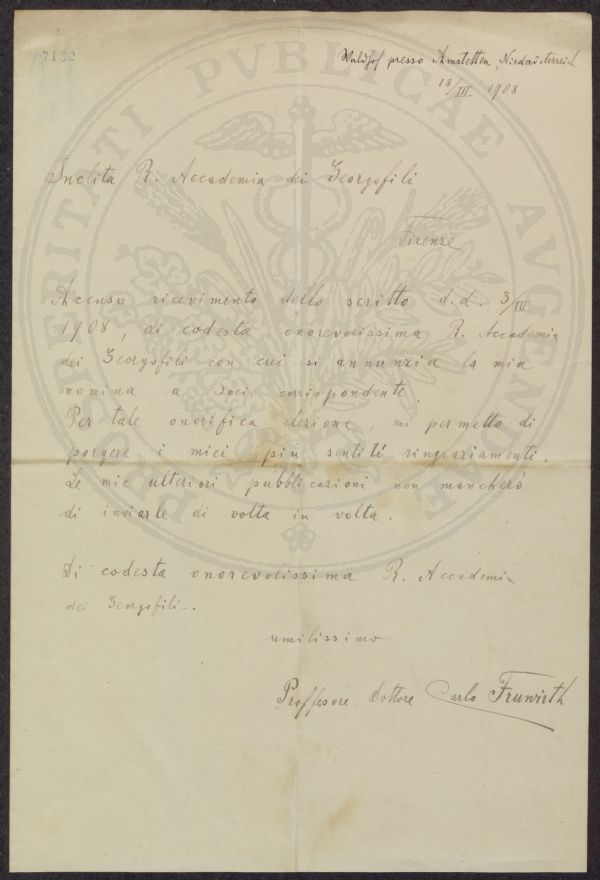 7132
Waldhof presso Amstetten, Niederösterreich
18/III 1908
Inclita R. Accademia dei Georgofili
Firenze
Accuso ricevimento dello scritto d.d. 3/III
1908, di codesta onorevolissima R. Accademia
dei Georgofili con cui si annunzia la mia
nomina a Socio corrispondente.
Per tale onorifica elezione, mi permetto di
porgere i miei più sentiti ringraziamenti.
Le mie ulteriori pubblicazioni non mancherò
di inviarle di volta in volta.
Di codesta onorevolissima R. Accademia
dei Georgofili.
umilissimo
Proffesore Dottore Carlo Fruwirth
PROSPERITATI PVBLICAE AVGENDAE